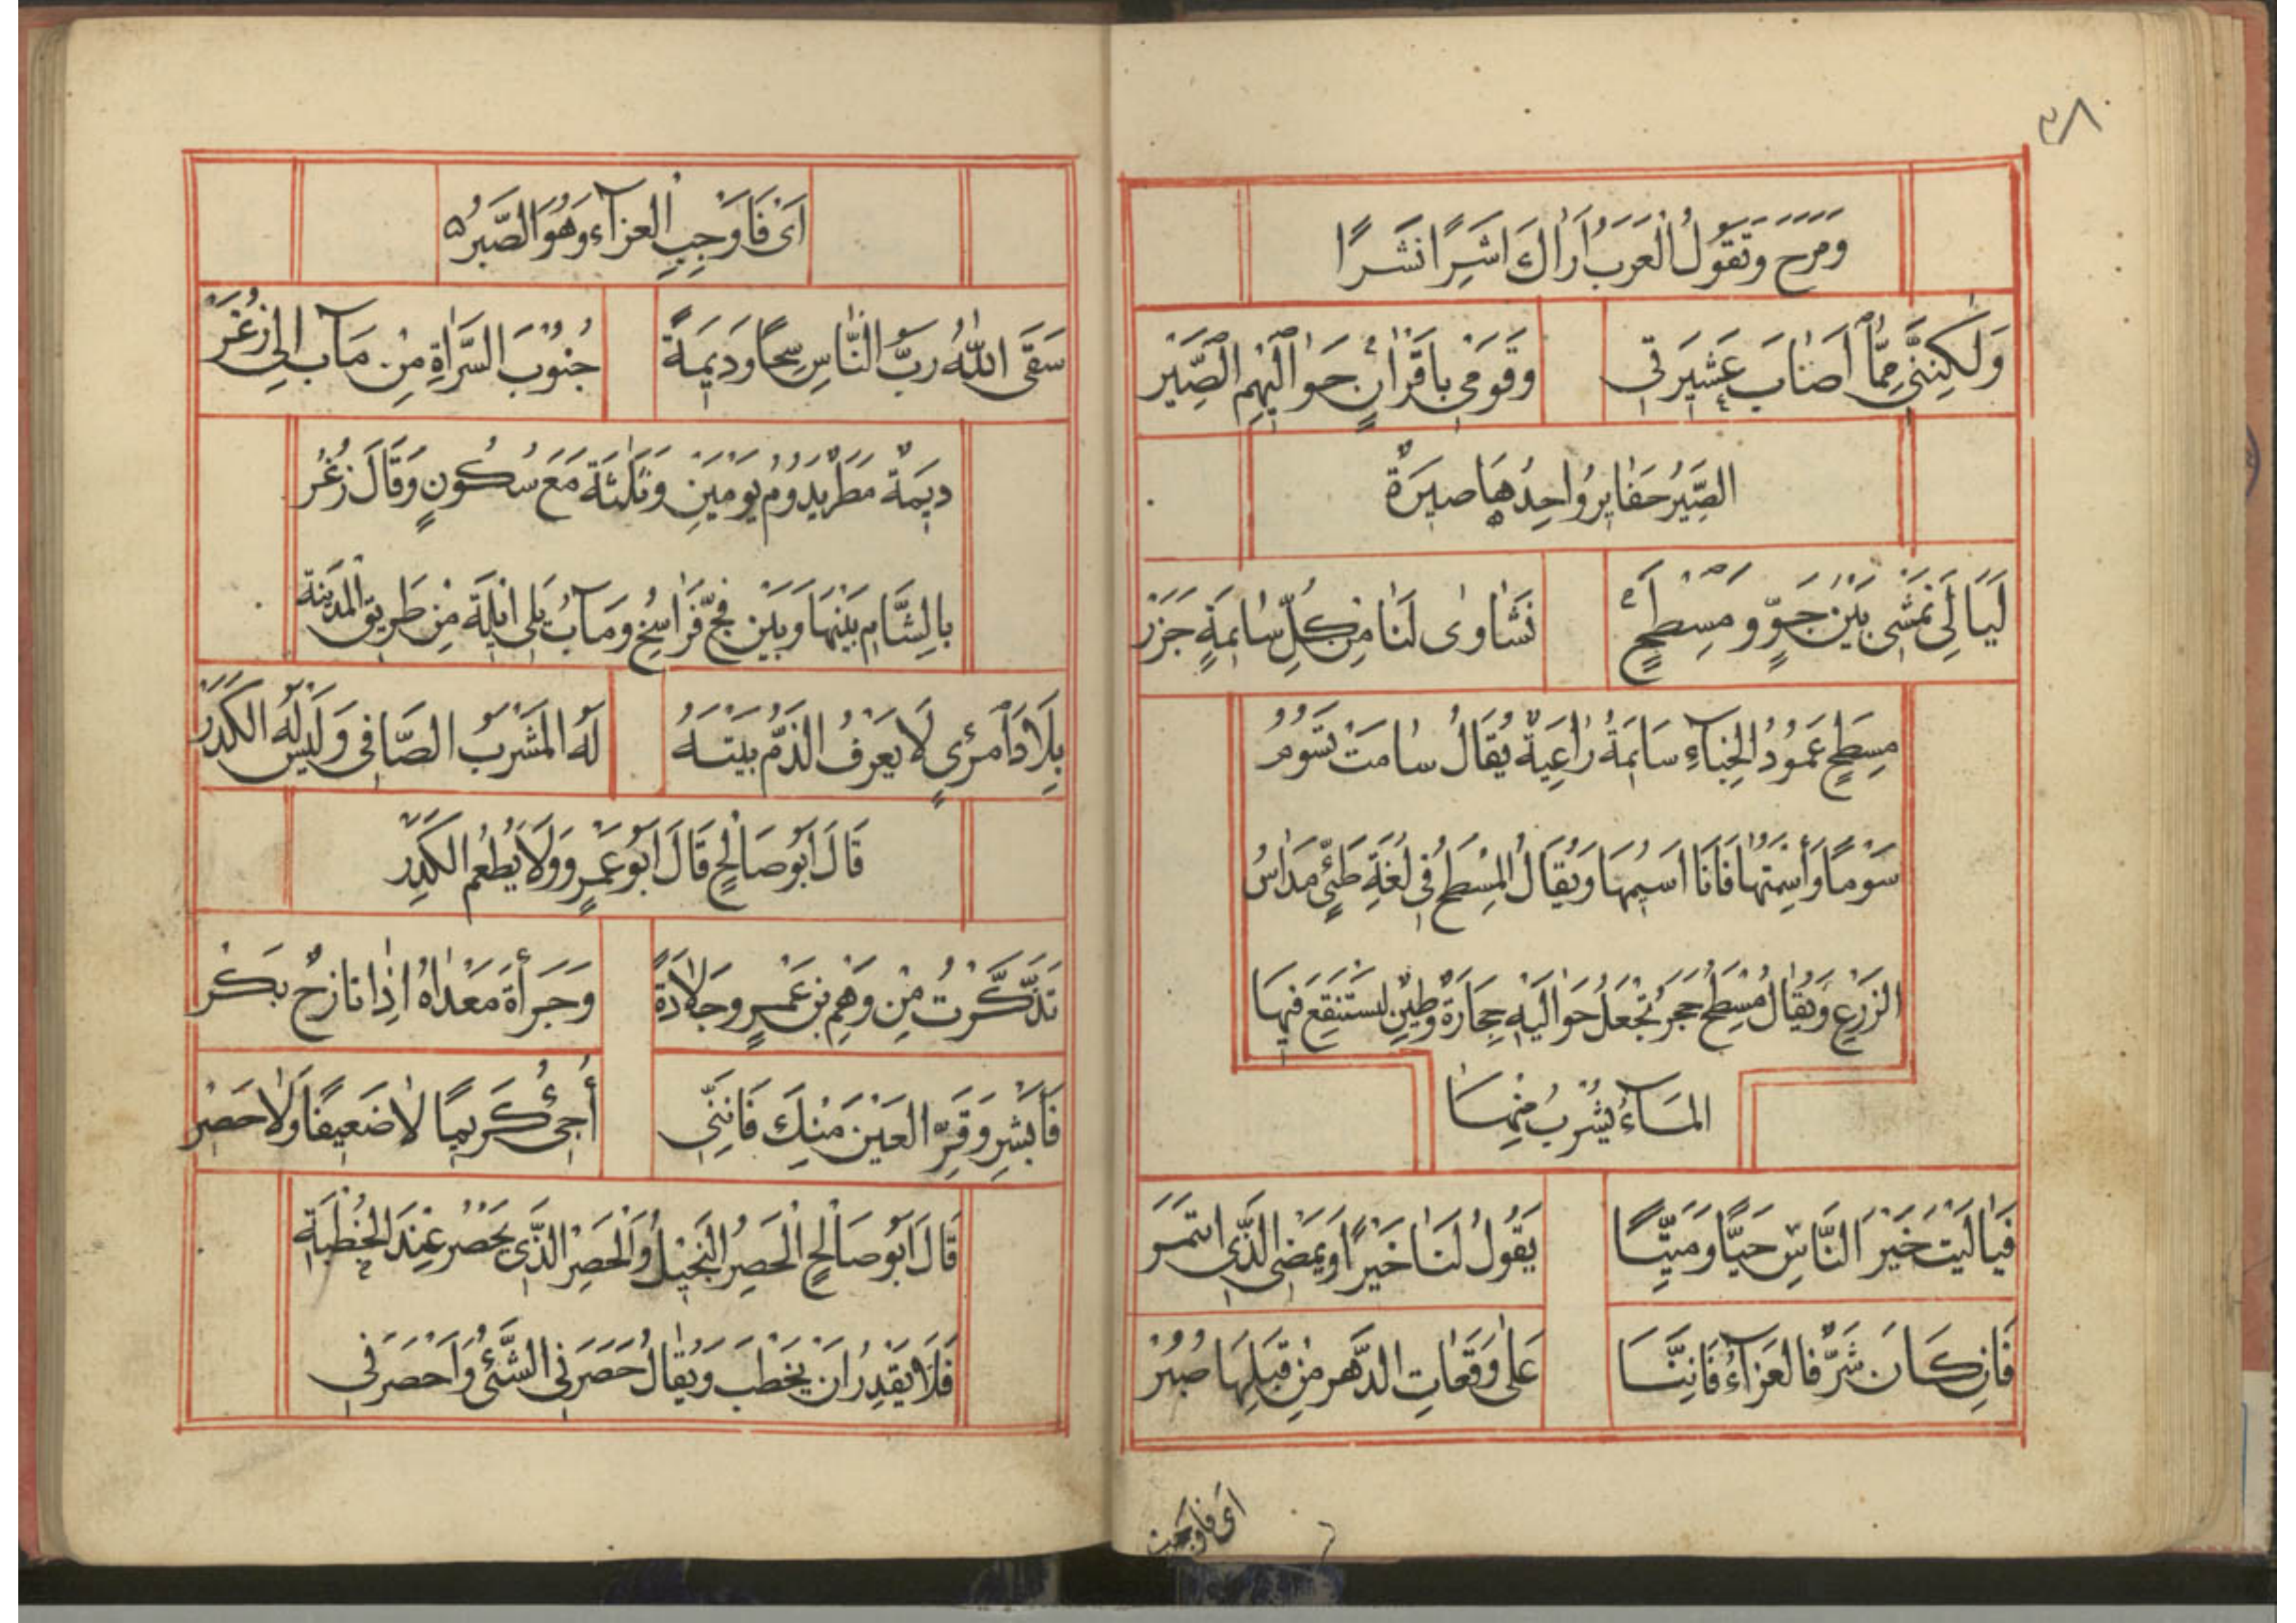 ٣٨
وَمَرَح وَتَقُولُ الْعَرَبُ اَرَاكَ اَشِرًا نَشَرًا
وَلَكِنَّنِي مِمَّا اَصَابَ عَشِيرَتِي وَقَوْمِي بِاَقْرَانٍ حَوَالَيْهِم الصِّيَر
الصِّيَرُ حَفَايِرُ وَاحِدُهَا صِيرَةٌ
لَيَالِي نَمْشِي بَيْنَ جَوٍّ وَمِسْطَحٍ نَشَاوَى لَنَا مِنْ كُلِّ سَايِمَةٍ جَزَرْ
مِسْطَحٍ عَمُودُ الْخِبَآءِ سَايِمَةُ رَاعِيَةٌ يُقَالُ سَامَتْ تَسُومُ
سَوْمًا وَأَسَمْتُهَا فَاَنَا اَسِيمُهَا وَيُقَالُ الْمِسْطَحُ فِي لُغَةِ طَيِّئٍ مَدَاسُ
الزَرْعِ وَيُقَالُ مِسْطَحُ حَجَرٌ تُجْعَلُ حَوَالَيْهِ حِجَارَةٌ وَطِينٌ لِيَسْتَنْقِعَ فِيهَا
المَآءُ يُشْرَبُ مِنْهَا
فَيَالَيْتَ خَيْرَ النَّاسِ حَيًّا وَمَيِّتًا يَقُولُ لَنَا خَيْرًا وَيَمْضِي الَّذِي ائتَمَرْ
فَاِنْ كَانَ شَرٌّ فَالعَزَآءُ فَاِنَّنَا عَلَى وَقَعَاتِ الدَّهْرِ مِنْ قَبْلِهَا صُبُرْ
اَى فَاَوْجِب
اَىْ فَاَوْجِبِ الْعَزَآءَ وَهُوَ الصَّبْرُ ه
سَقَى اللّٰهُ رَبُّ النَّاسِ سَحًّا وَدِيمَةً جُنُوبَ السَّرَاةِ مِنْ مَآب اِلَى زُغَرْ
دِيمَةٌ مَطَرٌ يَدُومُ يَوْمَيْنِ وَثَلٰثَةً مَعَ سُكُونٍ وَقَالَ زُغَرُ
بِالشَّامِ بَيْنَهَا وَبَيْنَ فَجّ فَرَاسِخ وَمَآبُ يَلِي اَيْلَةَ مِنْ طَرِيقِ الْمَدِينَةِ
بِلَادَ اَمْرِئٍ لَا يَعْرِفُ الذَّمُّ بَيْتَهُ لَهُ المَشْرَبُ الصَّافِي وَلَيْسَ لَهُ الكَدَرْ
قَالَ اَبُو صَالِحٍ قَالَ اَبُو عَمْرٍو وَلَا يُطْعَمُ الكَدِرْ
تَذَكَّرْتُ مِنْ وَهْمِ بْنِ عَمْرٍو جَلَادَةً وَجَرْأَةَ مَعْدَاهُ اِذَا نَازِحٌ بَكَرْ
فَاَبْشِرِ وَقَرِّ العَيْنَ مِنْكَ فَاِنَّنِي أَجِئُ كَرِيمًا لَا ضَعِيفًا وَلَا حَصِرْ
قَالَ اَبُو صَالِحٍ الْحَصِرُ الْبَخِيلُ وَالْحَصِرُ الَّذِي يَحْصَرُ عِنْدَ الْخُطْبَةِ
فَلَا يَقْدِرُ اَنْ يَخْطُبَ وَيُقَالُ حَصَرَنِي الشَّىْءُ وَاَحْصَرَنِي